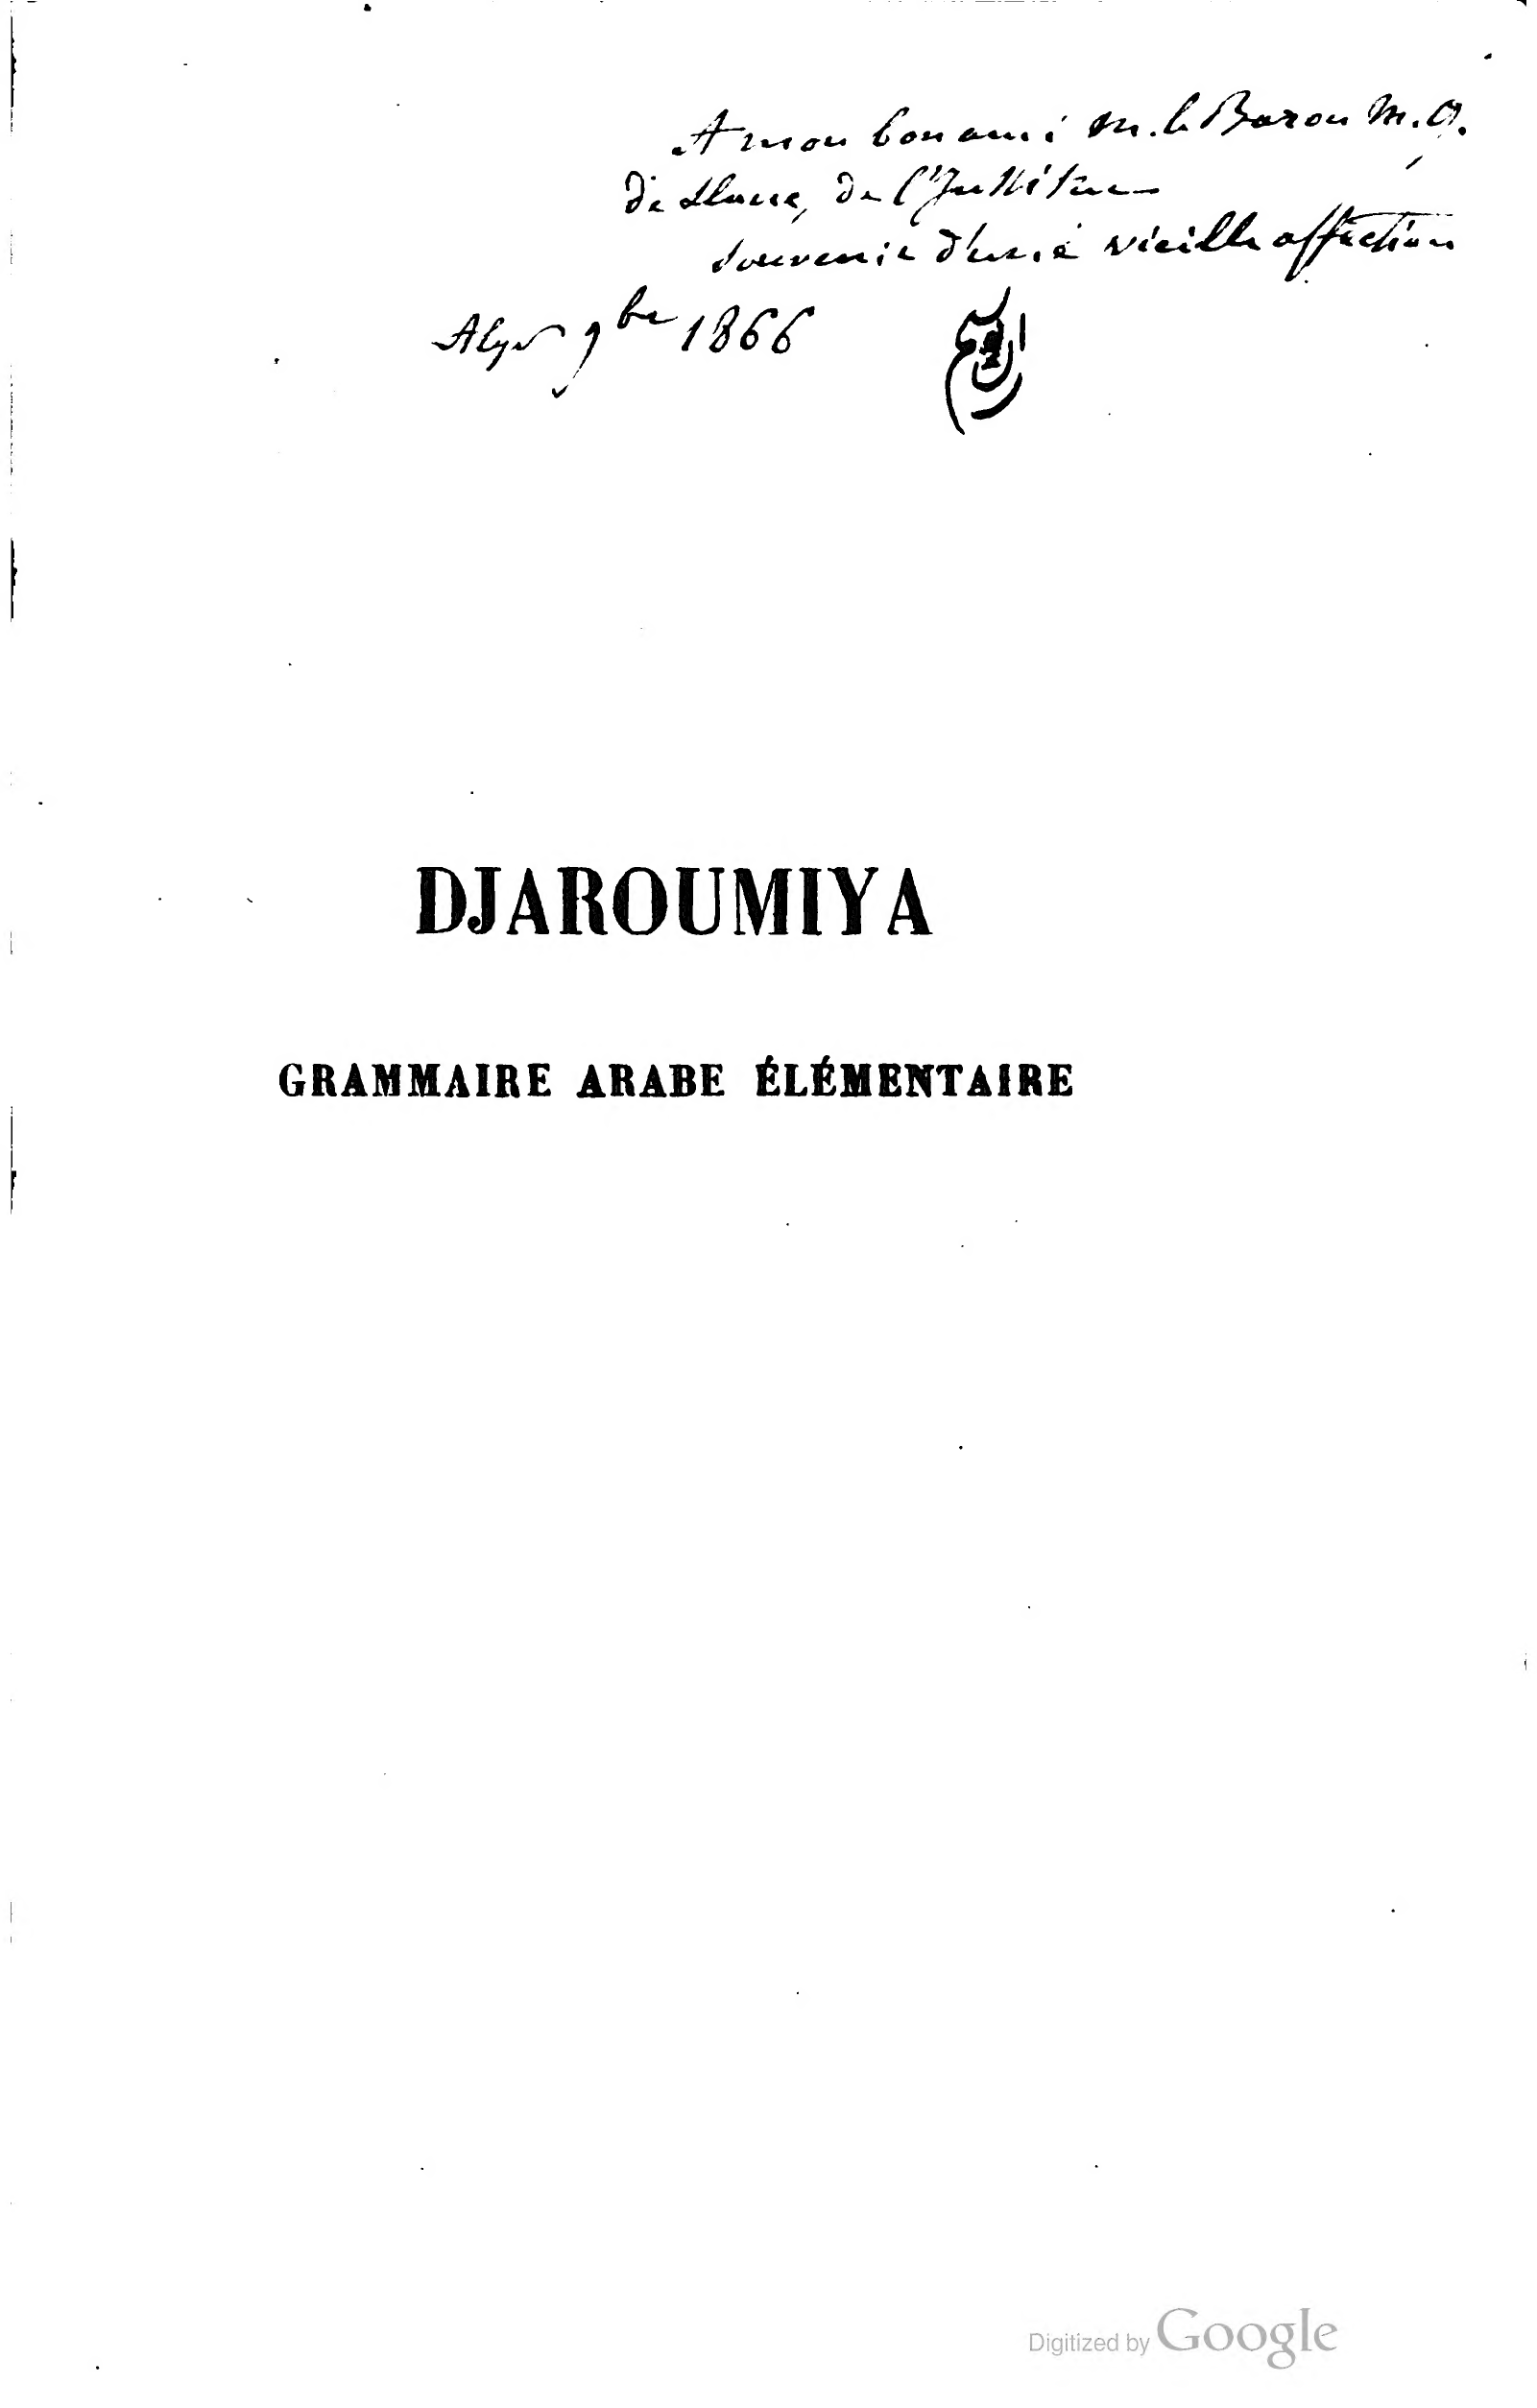 A mon bon ami M. le Baron M. G.
de Slane, de l'Institut
souvenir d'une vieille affection
Alger 9bre 1866
DJAROUMIYA
GRAMMAIRE ARABE ÉLÉMENTAIRE
Digitized by Google